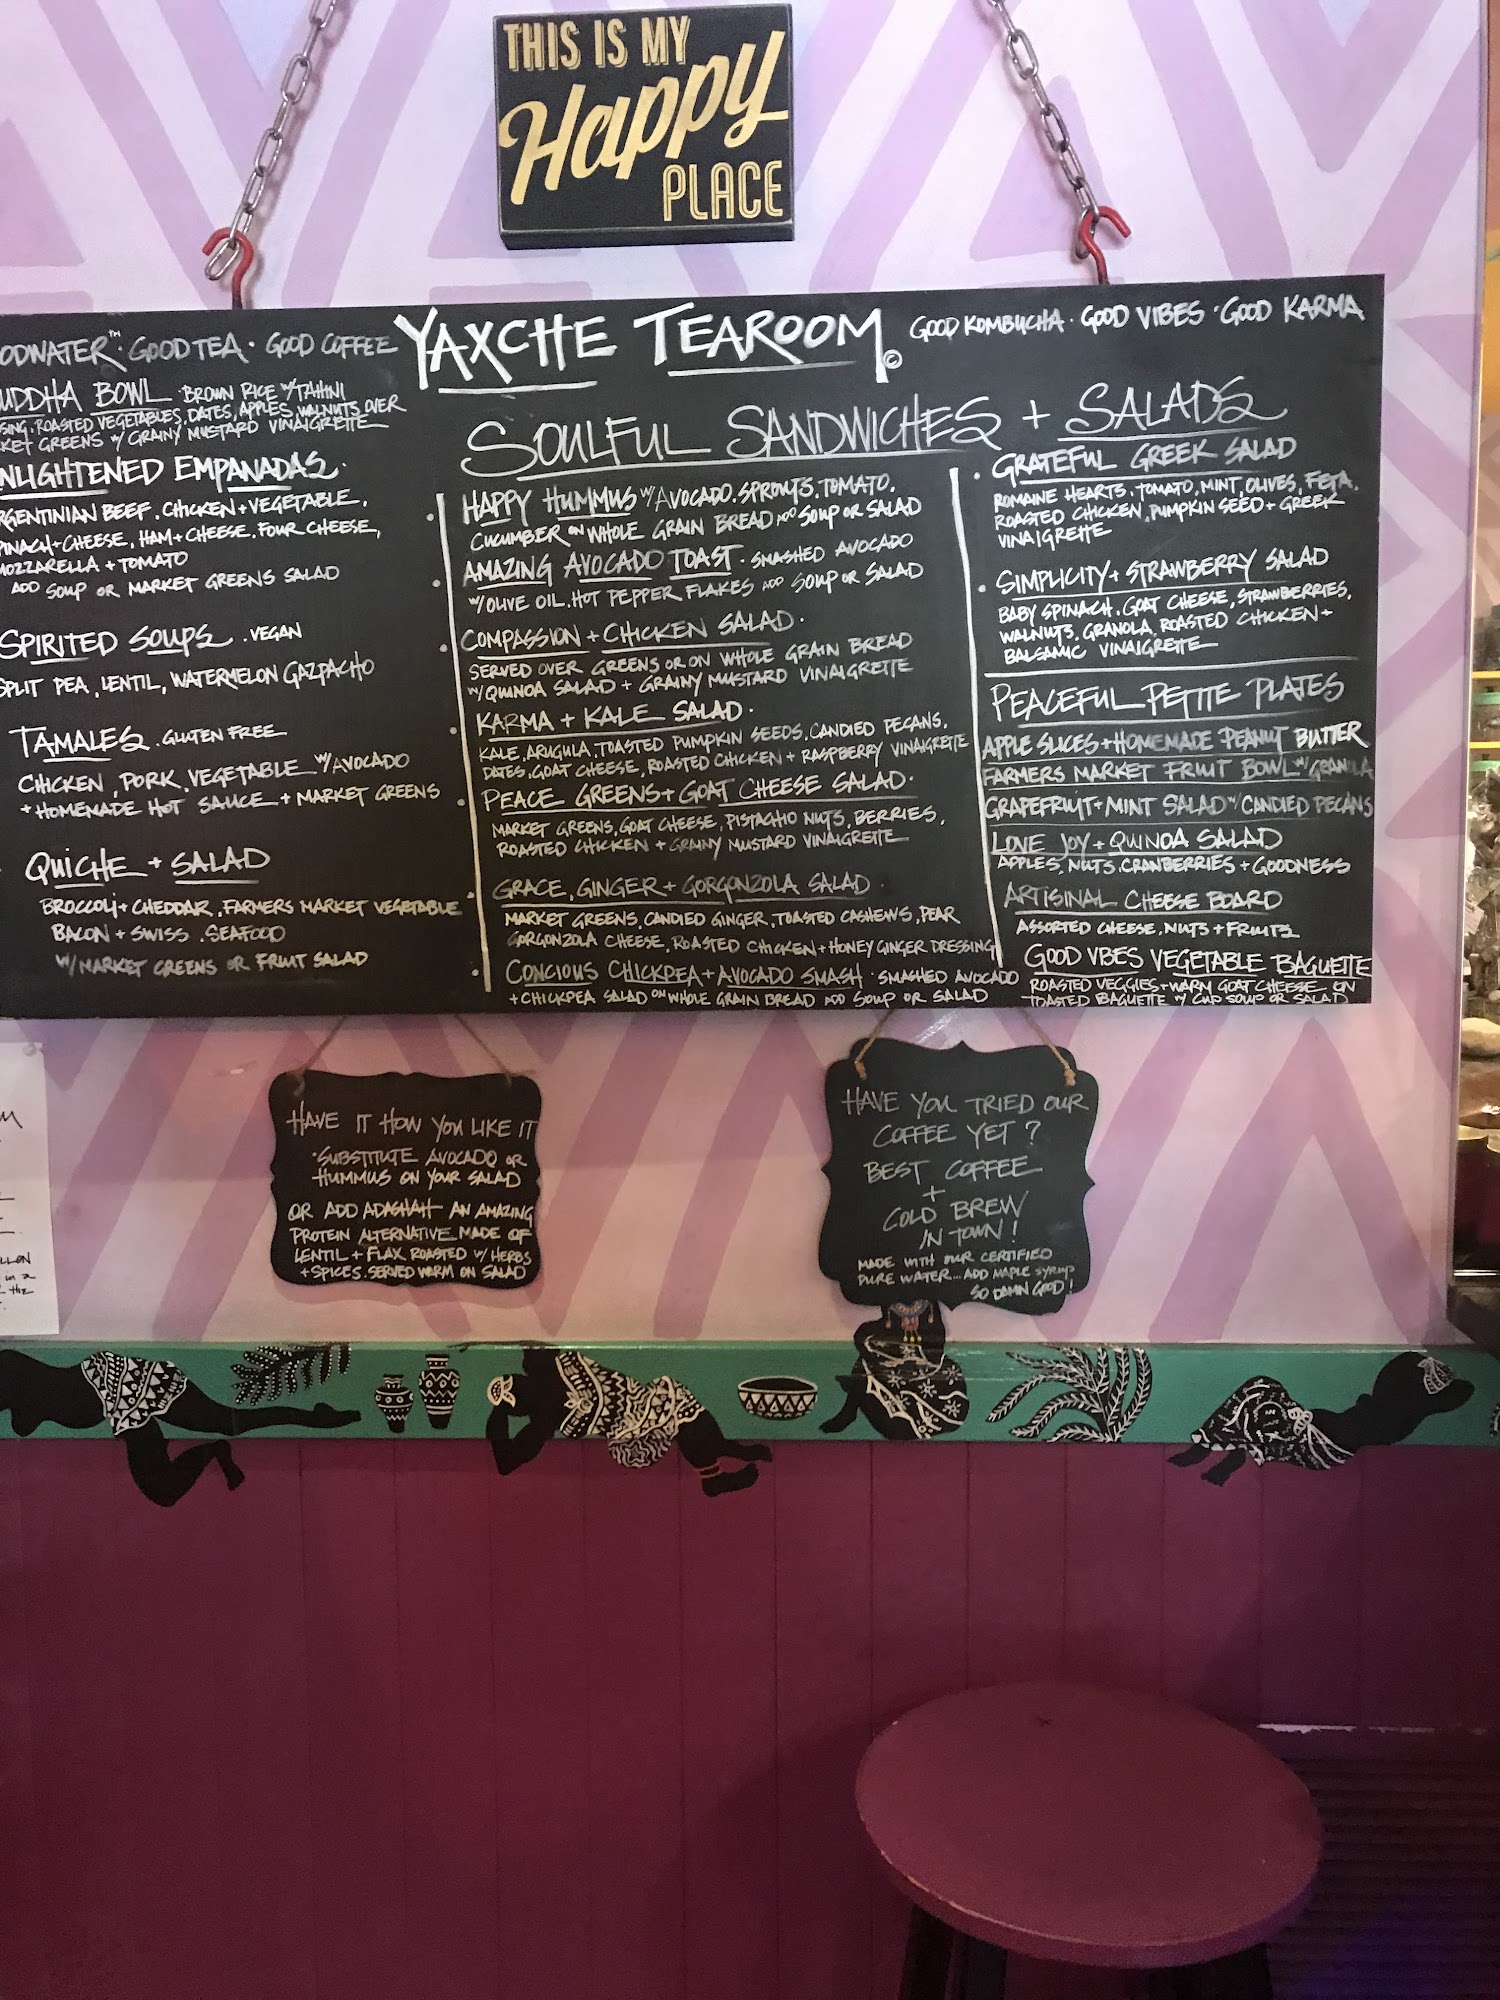 THIS IS MY
Happy
PLACE
YAXCHE TEAROOM ©
GOOD TEA · GOOD COFFEE
GOOD KOMBUCHA · GOOD VIBES · GOOD KARMA
BOWL · BROWN RICE W/ TAHINI
ROASTED VEGETABLES, DATES, APPLES, WALNUTS OVER
GREENS W/ GRAINY MUSTARD VINAIGRETTE
EMPANADAS ·
BEEF, CHICKEN + VEGETABLE,
CHEESE, HAM + CHEESE, FOUR CHEESE,
MOZZARELLA + TOMATO
ADD SOUP OR MARKET GREENS SALAD
SPIRITED SOUPS . VEGAN
SPLIT PEA, LENTIL, WATERMELON GAZPACHO
TAMALES . GLUTEN FREE
CHICKEN, PORK, VEGETABLE W/ AVOCADO
+ HOMENADE HOT SAUCE + MARKET GREENS
QUICHE + SALAD
BROCCOLI + CHEDDAR, FARMERS MARKET VEGETABLE
BACON + SWISS . SEAFOOD
W/ MARKET GREENS OR FRUIT SALAD
SOULFUL SANDWICHES + SALADS
· HAPPY HUMMUS W/ AVOCADO, SPROUTS, TOMATO,
CUCUMBER ON WHOLE GRAIN BREAD ADD SOUP OR SALAD
· AMAZING AVOCADO TOAST · SMASHED AVOCADO
W/ OLIVE OIL, HOT PEPPER FLAKES ADD SOUP OR SALAD
· COMPASSION + CHICKEN SALAD ·
SERVED OVER GREENS OR ON WHOLE GRAIN BREAD
W/ QUINOA SALAD + GRAINY MUSTARD VINAIGRETTE
· KARMA + KALE SALAD ·
KALE, ARUGULA, TOASTED PUMPKIN SEEDS, CANDIED PECANS,
DATES, GOAT CHEESE, ROASTED CHICKEN + RASPBERRY VINAIGRETTE
· PEACE GREENS + GOAT CHEESE SALAD ·
MARKET GREENS, GOAT CHEESE, PISTACHIO NUTS, BERRIES,
ROASTED CHICKEN + GRAINY MUSTARD VINAIGRETTE
· GRACE, GINGER + GORGONZOLA SALAD ·
MARKET GREENS, CANDIED GINGER, TOASTED CASHEWS, PEAR
GORGONZOLA CHEESE, ROASTED CHICKEN + HONEY GINGER DRESSING
· CONCIOUS CHICKPEA + AVOCADO SMASH · SMASHED AVOCADO
+ CHICKPEA SALAD ON WHOLE GRAIN BREAD ADD SOUP OR SALAD
· GRATEFUL GREEK SALAD
ROMAINE HEARTS, TOMATO, MINT, OLIVES, FETA,
ROASTED CHICKEN, PUMPKIN SEED + GREEK
VINAIGRETTE
· SIMPLICITY + STRAWBERRY SALAD
BABY SPINACH, GOAT CHEESE, STRAWBERRIES,
WALNUTS, GRANOLA, ROASTED CHICKEN +
BALSAMIC VINAIGRETTE
PEACEFUL PETITE PLATES
APPLE SLICES + HOMEMADE PEANUT BUTTER
FARMERS MARKET FRUIT BOWL W/ GRANOLA
GRAPEFRUIT + MINT SALAD W/ CANDIED PECANS
LOVE JOY + QUINOA SALAD
APPLES, NUTS, CRANBERRIES + GOODNESS
ARTISINAL CHEESE BOARD
ASSORTED CHEESE, NUTS + FRUITS
GOOD VIBES VEGETABLE BAGUETTE
ROASTED VEGGIES + WARM GOAT CHEESE ON
TOASTED BAGUETTE W/ CUP SOUP OR SALAD
HAVE IT HOW YOU LIKE IT
· SUBSTITUTE AVOCADO OR
HUMMUS ON YOUR SALAD
OR ADD ADASHAH AN AMAZING
PROTEIN ALTERNATIVE MADE OF
LENTIL + FLAX, ROASTED W/ HERBS
+ SPICES. SERVED WARM ON SALAD
HAVE YOU TRIED OUR
COFFEE YET?
BEST COFFEE
+
COLD BREW
IN TOWN!
MADE WITH OUR CERTIFIED
PURE WATER... ADD MAPLE SYRUP
SO DAMN GOOD!
in a
the